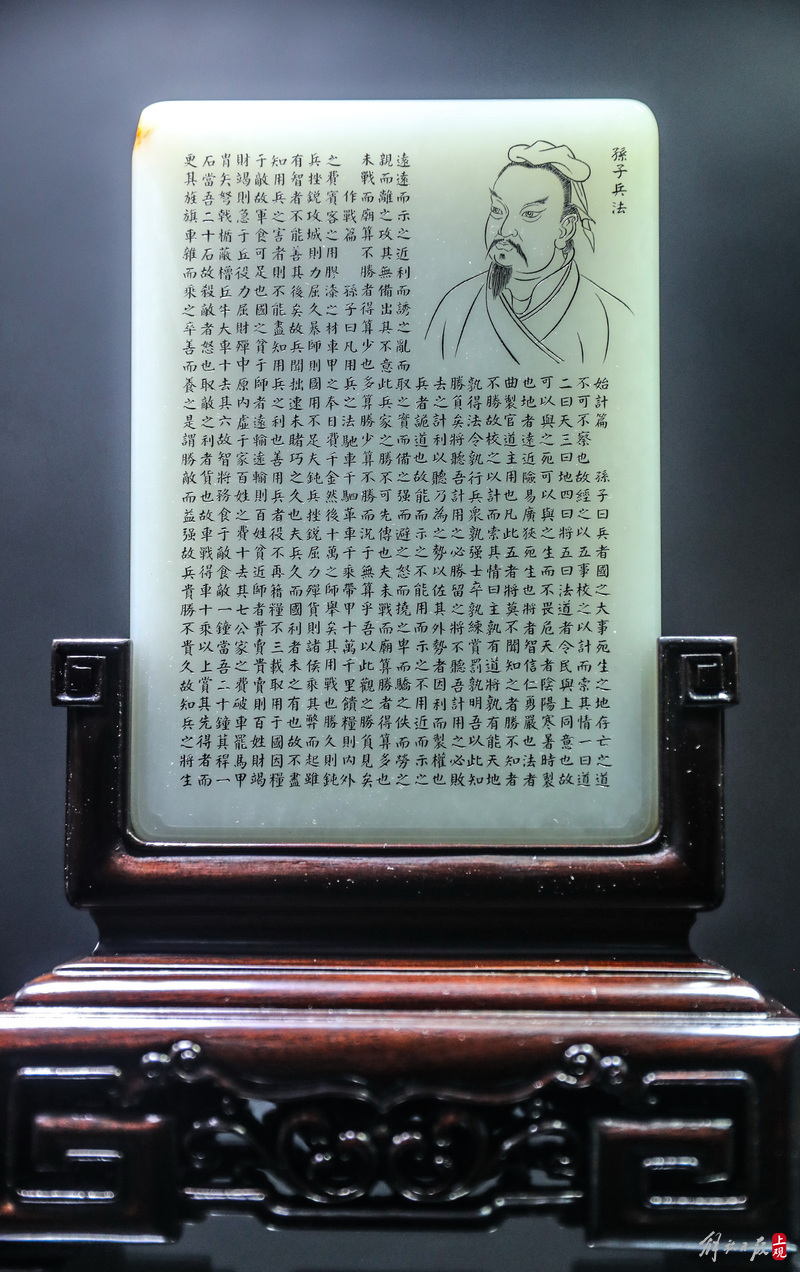 孫子兵法
始計篇　孫子曰兵者國之大事死生之地存亡之道
不可不察也　故經之以五事校之以計而索其情一曰道
二曰天三曰地四曰將五曰法道者令民與上同意也故
可以與之死可以與之生而不畏危天者陰陽寒暑時製
也地者遠近險易廣狹死生也將者智信仁勇嚴也法者
曲製官道主用也凡此五者將莫不聞知之者勝不知者
不勝故校之以計而索其情曰主孰有道將孰有能天地
孰得法令孰行兵衆孰强士卒孰練賞罰孰明吾以此知
勝負矣將聽吾計用之必勝留之將不聽吾計用之必敗
去之計利以聽乃為之勢以佐其外勢者因利而製權也
兵者詭道也故能而示之不能用而示之不用近而示之
遠遠而示之近利而誘之亂而取之實而備之强而避之怒而撓之卑而驕之佚而勞之
親而離之攻其無備出其不意此兵家之勝不可先傳也夫未戰而廟算勝者得算多也
未戰而廟算不勝者得算少也多算勝少算不勝而況于無算乎吾以此觀之勝負見矣
作戰篇　孫子曰凡用兵之法馳車千駟革車千乘帶甲十萬千里饋糧則內外
之費賓客之用膠漆之材車甲之奉日費千金然後十萬之師舉矣其用戰也勝久則鈍
兵挫鋭攻城則力屈久暴師則國用不足夫鈍兵挫鋭屈力殫貨則諸侯乘其弊而起雖
有智者不能善其後矣故兵聞拙速未睹巧之久也夫兵久而國利者未之有也故不盡
知用兵之害者則不能盡知用兵之利也善用兵者役不再籍糧不三載取用于國因糧
于敵故軍食可足也國之貧于師者遠輸遠輸則百姓貧近師者貴賣貴賣則百姓財竭
財竭則急于丘役力屈財殫中原內虛于家百姓之費十去其七公家之費破車罷馬甲
胄矢弩戟楯蔽櫓丘牛大車十去其六故智將務食于敵食敵一鐘當吾二十鐘萁稈一
石當吾二十石故殺敵者怒也取敵之利者貨也故車戰得車十乘以上賞其先得者而
更其旌旗車雜而乘之卒善而養之是謂勝敵而益强故兵貴勝不貴久故知兵之將生
解放日报 上观